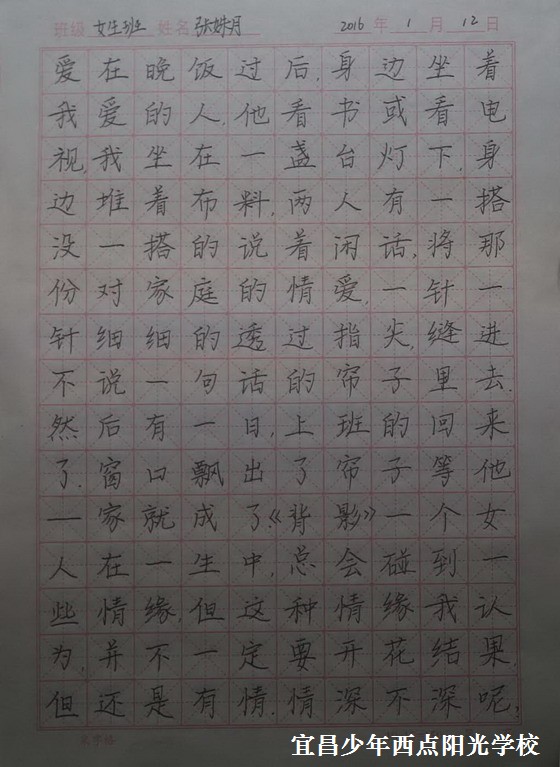 班级 女生班 姓名 张姝月 2016 年 1 月 12 日
爱在晚饭过后,身边坐着
我爱的人,他看书或看电
视,我坐在一盏台灯下,身
边堆着布料,两人有一搭
没一搭的说着闲话,将那
份对家庭的情爱,一针一
针细细的透过指尖,缝进
不说一句话的帘子里去.
然后有一日,上班的回来
了.窗口飘出了帘子等他
—家就成了《背影》一个女
人在一生中,总会碰到一
些情缘,但这种情缘我认
为,并不一定要开花结果.
但还是有情.情深不深呢?
宜昌少年西点阳光学校